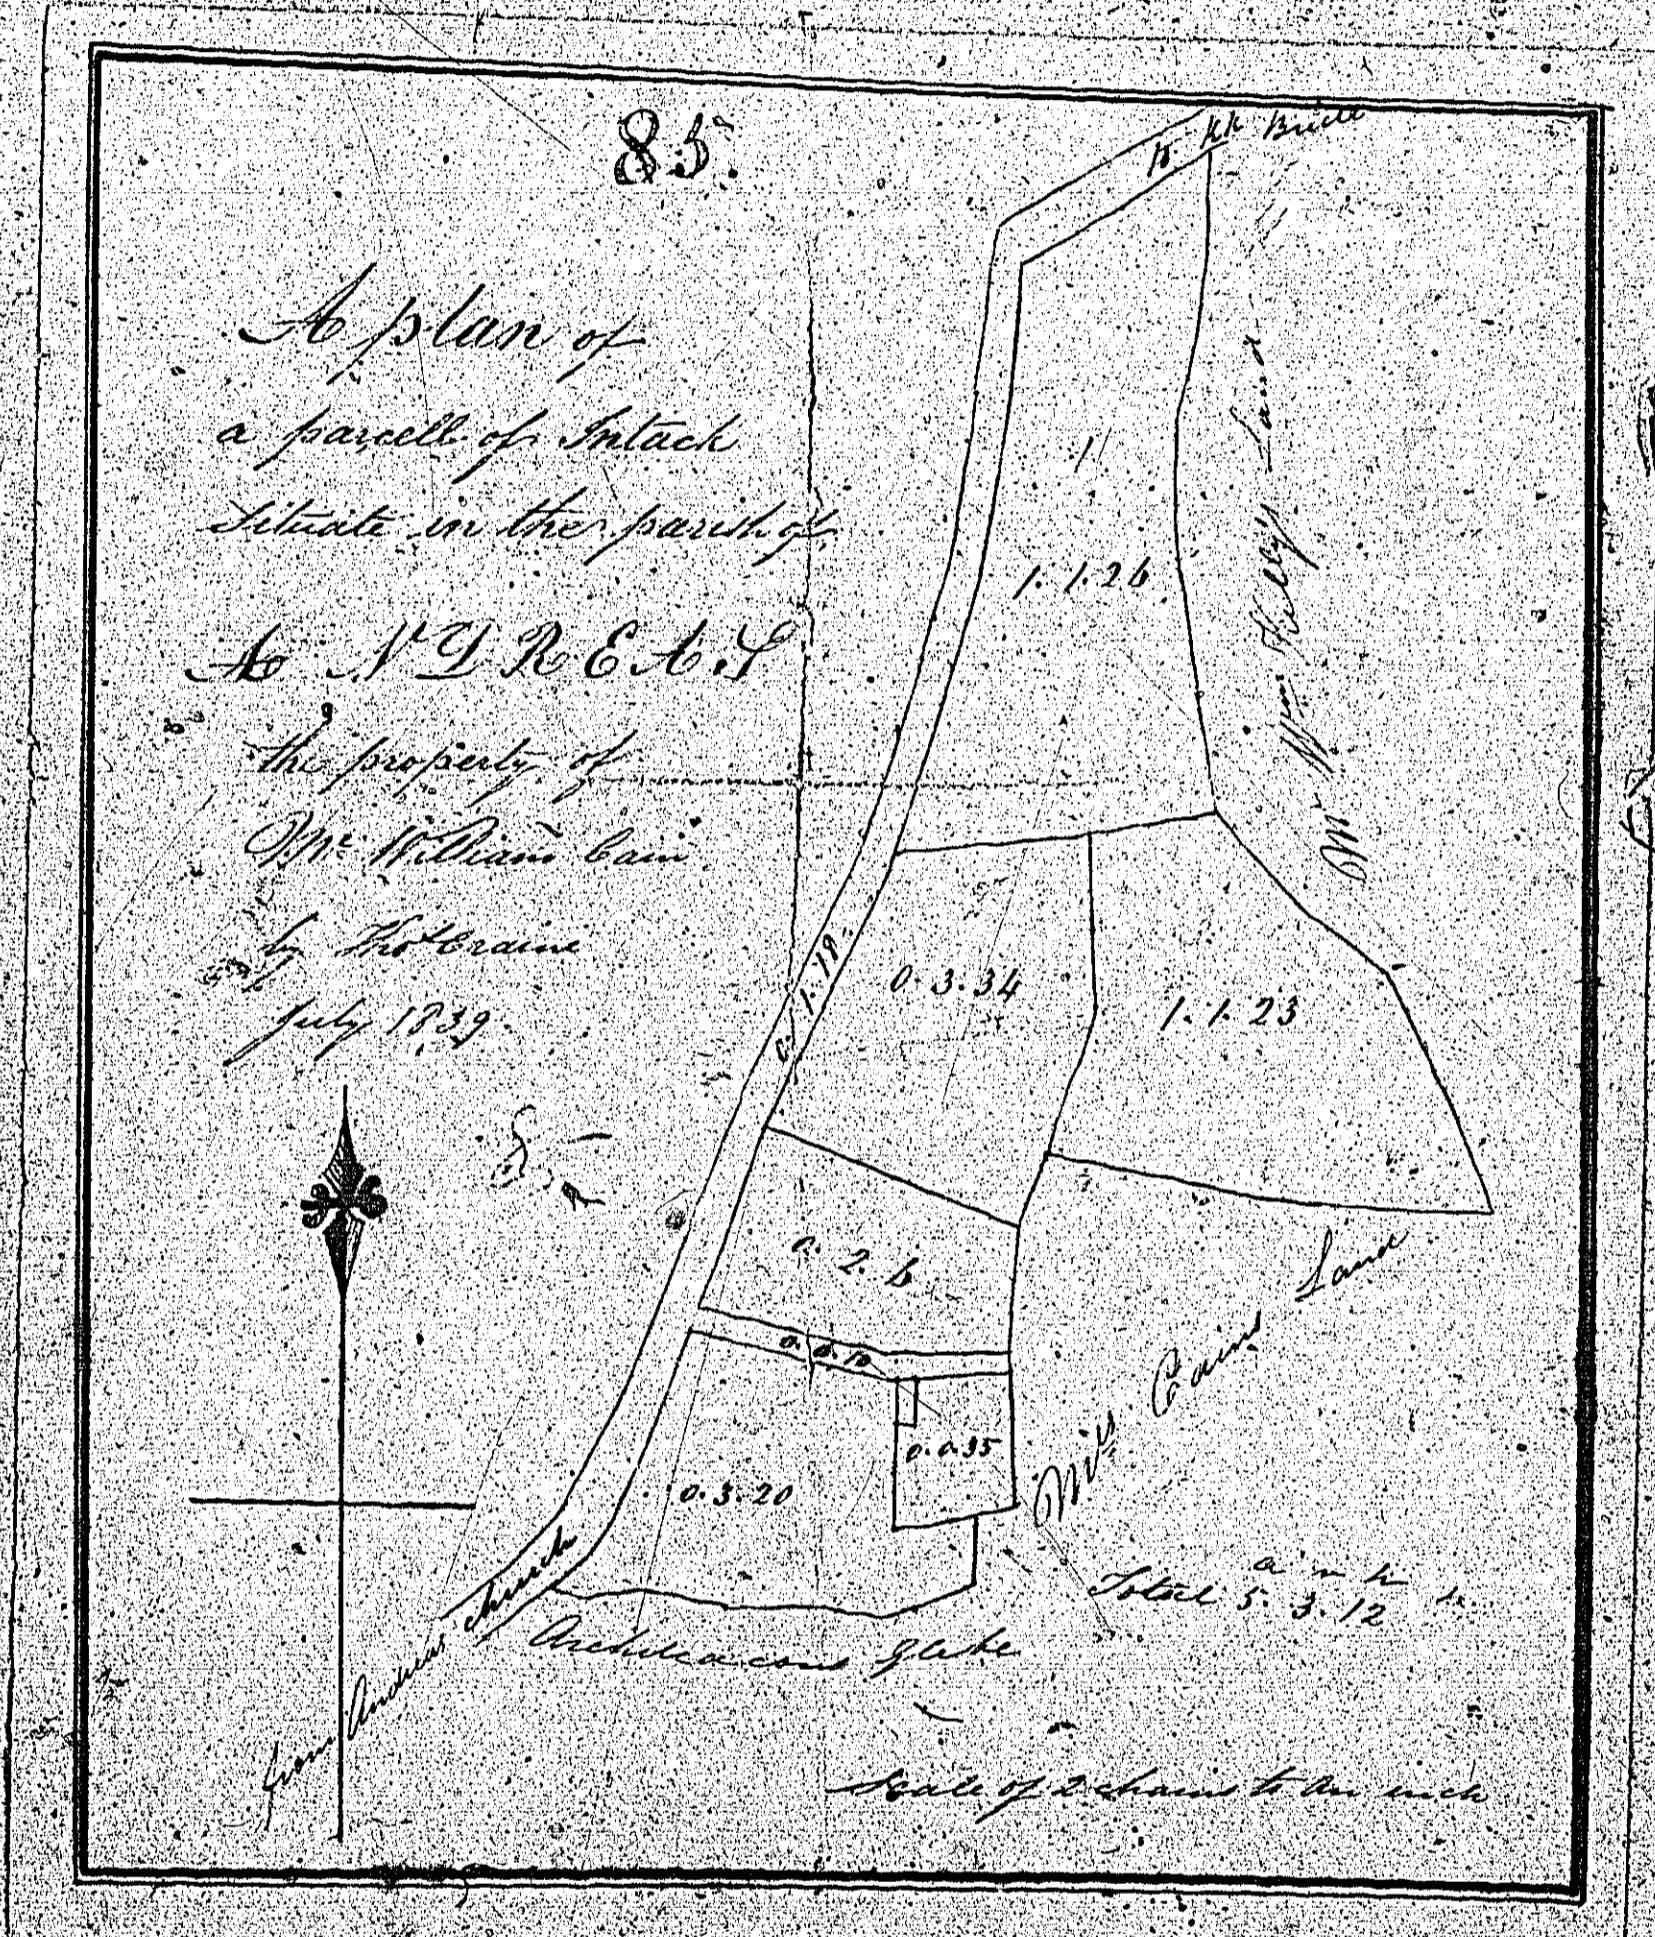 85
to Kk Bride
A plan of
a parcell of Intack
Situate in the parish of
ANDREAS
the property of
Mr. William Cain
by Thos Craine
July 1839
1. 1. 26
Mr Wm Kelly's Land
0. 1. 18
0. 3. 34
1. 1. 23
0. 2. 6
0. 0. 10
0. 0. 35
0. 3. 20
Land
from Andreas Church
Archdeacons glebe
a r p
Total 5. 3. 12
Scale of 2 chains to an inch